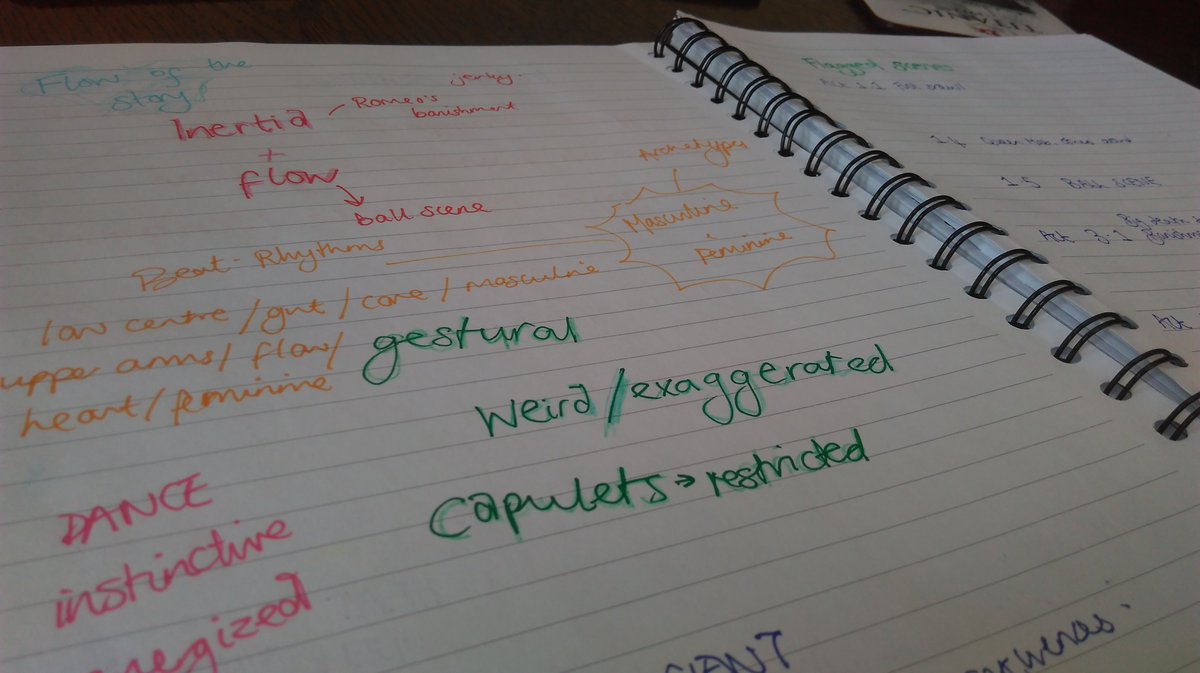 Flow of the
story!
Inertia - Romeo's
banishment
jerky.
+
flow
ball scene
Beat - Rhythms
Archetypes
Masculine
feminine
low centre/gut/core/masculine
upper arms/flow/
heart/feminine
gestural
Weird/exaggerated
Capulets → restricted
DANCE
instinctive
Flagged scenes
Act 1.1
1.4 Queen Mab
1.5 BALL SCENE
Act 3.1
Act